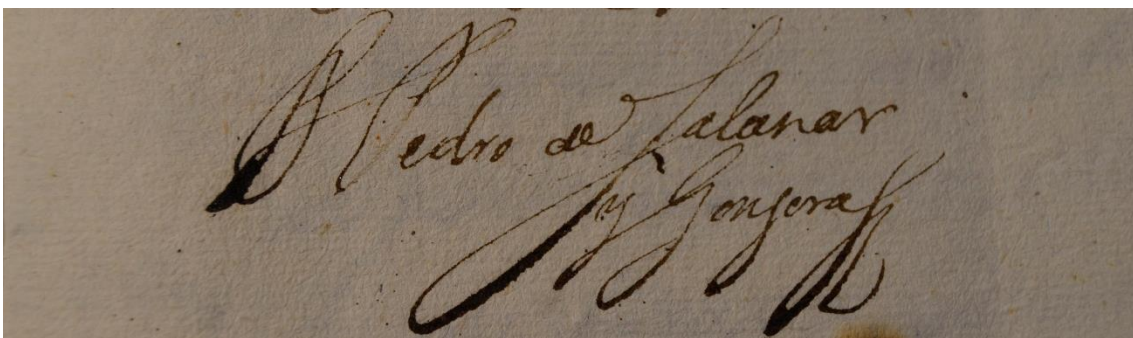 Dn Pedro de Salanar
y Gongora